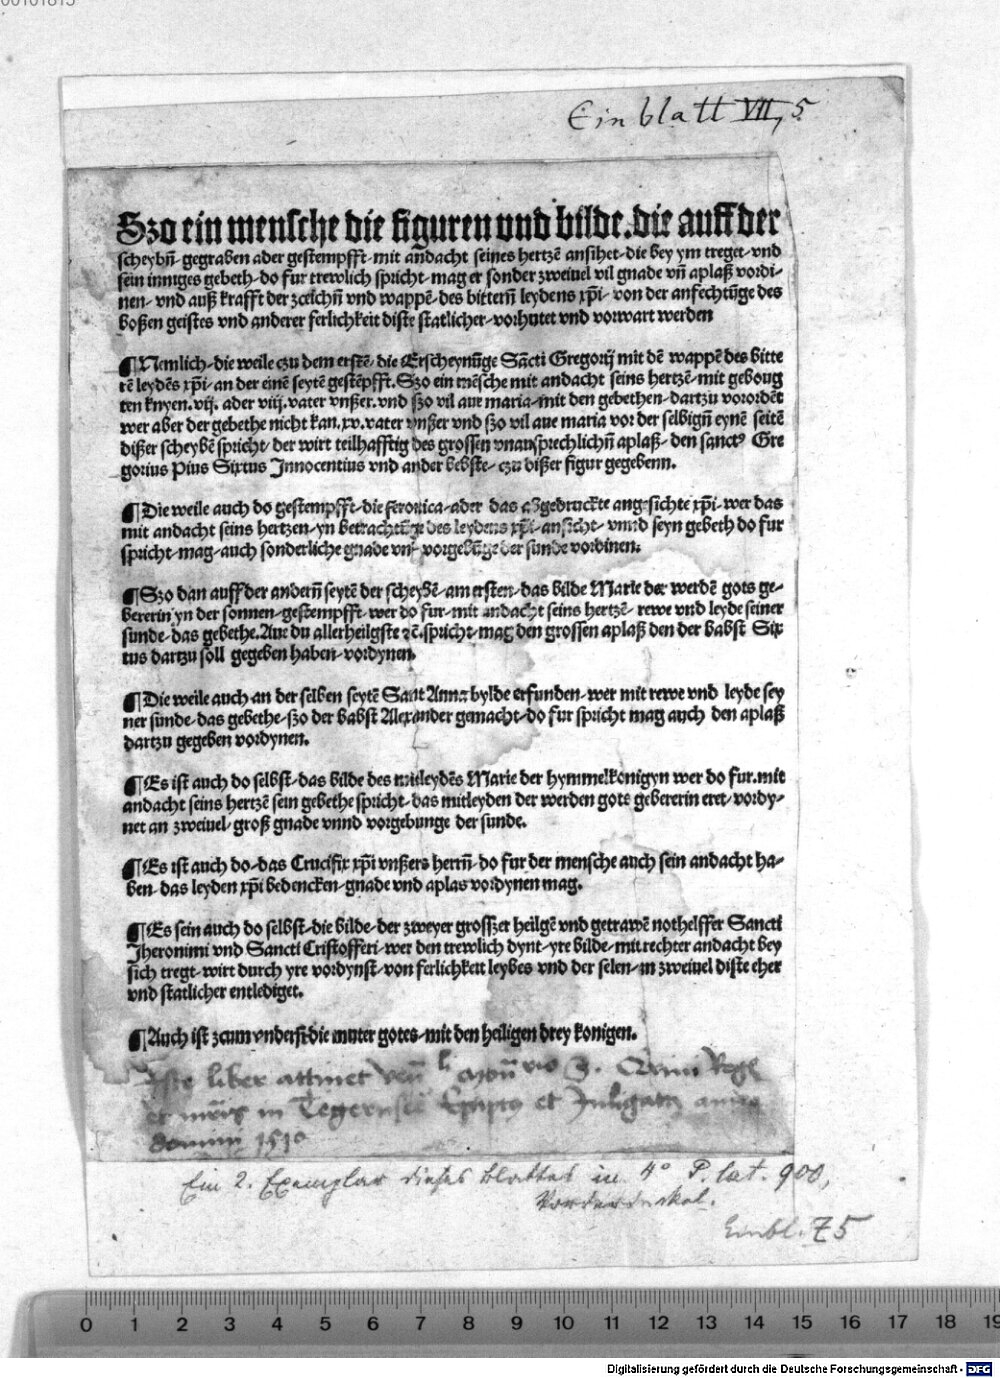 00101815
Einblatt VII, 5
Szo ein mensche die figuren vnd bilde. die auff der
scheybn̄· gegraben ader gestempfft· mit andacht seines hertzē ansihet· die bey ym treget· vnd
sein inniges gebeth· do fur trewlich spricht· mag er sonder zweiuel vil gnade vn̄ aplaß vordi-
nen· vnd auß krafft der zceichn̄ vnd wappē· des bittern̄ leydens xp̄i· von der anfechtūge des
boßen geistes vnd anderer ferlichkeit diste statlicher· vorhutet vnd vorwart werden
¶ Nemlich· die weile czu dem erstē· die Erscheynūge Sācti Gregorij mit dē wappē des bitte
rē leydēs xp̄i· an der einē seytē gestēpfft. Szo ein mēsche mit andacht seins hertzē· mit geboug
ten knyen. vij. ader viij. vater vnßer. vnd ßzo vil aue maria· mit den gebethen· dartzu vorordēt
wer aber der gebethe nicht kan. xv. vater vnßer vnd ßzo vil aue maria vor der selbign̄ eynē seitē
dißer scheybē spricht· der wirt teilhafftig des grossen vnausprechlichn̄ aplaß· den sanctꝰ Gre
gorius Pius Sixtus Innocentius vnd ander bebste· czu dißer figur gegebenn.
¶ Die weile auch do gestempfft· die feronica· ader das aßgedruckte angesichte xp̄i· wer das
mit andacht seins hertzen· yn betrachtūge des leydens xp̄i· ansicht· vnnd seyn gebeth do fur
spricht· mag· auch sonderliche gnade vn̄ vorgebūge der sunde vordinen.
¶ Szo dan auff der andern̄ seytē der scheybē· am ersten· das bilde Marie der werdē gots ge-
bererin yn der sonnen· gestempfft· wer do fur· mit andacht seins hertzē· rewe vnd leyde seiner
sunde· das gebethe. Aue du allerheilgste ꝛc̄. spricht· mag den grossen aplaß den der babst Six
tus dartzu soll gegeben haben· vordynen.
¶ Die weile auch an der selben seytē Sant Anna bylde erfunden· wer mit rewe vnd leyde sey
ner sunde· das gebethe· ßzo der babst Alexander gemacht· do fur spricht mag auch den aplaß
dartzu gegeben vordynen.
¶ Es ist auch do selbst· das bilde des mitleydēs Marie der hymmelkonigyn wer do fur. mit
andacht seins hertzē sein gebethe spricht· das mitleyden der werden gots gebererin eret· vordy-
net an zweiuel· groß gnade vnnd vorgebunge der sunde.
¶ Es ist auch do· das Crucifix xp̄i vnßers herrn̄· do fur der mensche auch sein andacht ha-
ben· das leyden xp̄i bedencken· gnade vnd aplas vordynen mag.
¶ Es sein auch do selbst· die bilde· der zweyer grosszer heilgē vnd getrawē nothelffer Sancti
Jheronimi vnd Sancti Cristofferi· wer den trewlich dynt· yre bilde· mit rechter andacht bey
sich tregt· wirt durch yre vordynst· von ferlichkeit leybes vnd der selen· in zweiuel diste eher
vnd statlicher entlediget.
¶ Auch ist zcum vnderst· die muter gotes· mit den heiligen drey konigen.
Iste liber attinet S. Quirini Rege
et in Tegernsee et anno
domini 1510
Ein 2. Exemplar dieses Blattes in 4° P. lat. 900,
Vorderdeckel.
Einbl. Z5
0 1 2 3 4 5 6 7 8 9 10 11 12 13 14 15 16 17 18 19
Digitalisierung gefördert durch die Deutsche Forschungsgemeinschaft - DFG